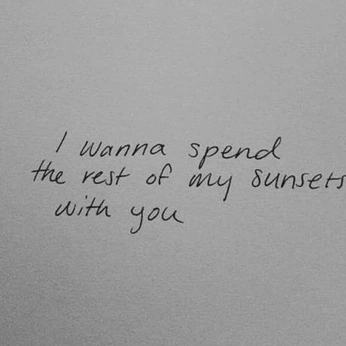 I wanna spend
the rest of my sunsets
with you